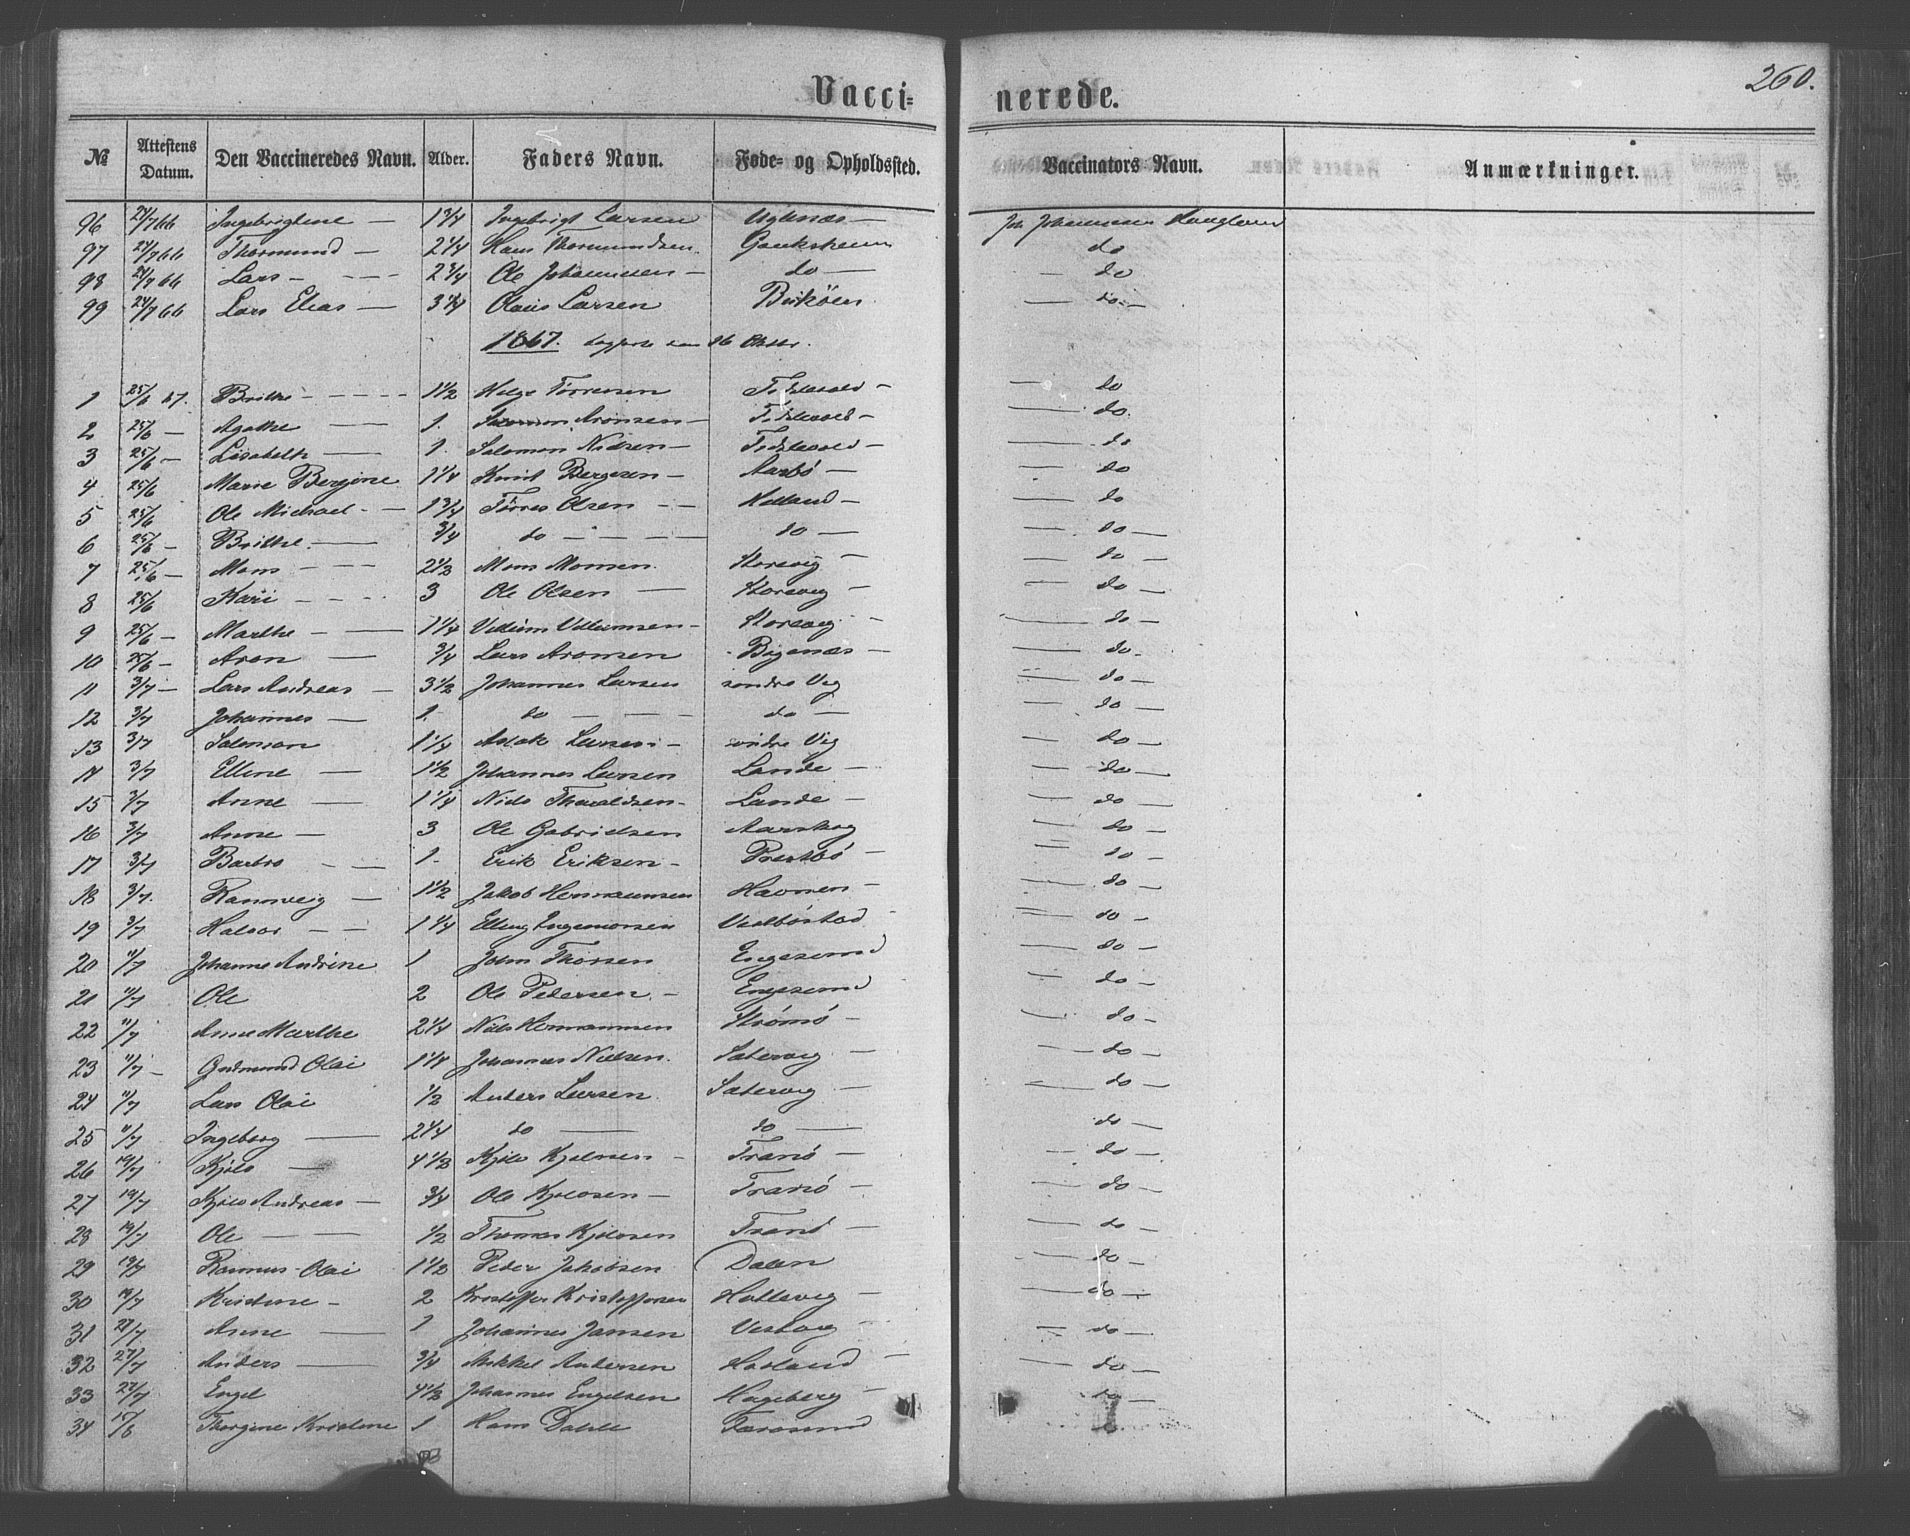 Vacci=nerede.
260.
No Attestens Datum. Den Vaccineredes Navn. Alder. Faders Navn. Føde= og Opholdssted. Vaccinators Navn. Anmærkninger.
96 24/7 66 Ingebrigtine — 1 3/4 Ingebrigt Larsen — Joh Johannessen Haugland
97 24/7 66 Thormund — 2 1/4 Hans Thormundsen Gauksheim do
98 24/7 66 Lars — 2 3/4 Ole Johannesen — do — — do
99 24/7 66 Lars Elias — 3 1/4 Olaus Larsen — do —
1867. 16 Oktbr.
1 25/6 67. Brithe — 1 1/2 Helge Tørresen — do
2 25/6 — Agathe — 1. Aronsen — — do.
3 25/6 — Lisabeth — 1. Salomon Nilsen — — do
4 25/6 Marie Bergine 1 1/4 Knut Bergesen — Aarbø — — do
5 25/6 Ole Michael — 1 3/4 Tørres Olsen — Helland — — do
6 25/6 — Brithe. — 3/4 do — do — — do —
7 25/6 — Mons — 2 1/2 Mons Monsen. Storevig — — do —
8 25/6 Kari — 3 Ole Olsen — Storevig — — do —
9 25/6 — Marthe — 1 1/4 Villum Villumsen — Storevig — — do —
10 25/6 — Aron — 3/4 Lars Aronsen — — do.
11 3/7 — Lars Andreas — 3 1/2 Johannes Larsen søndre Vig — do —
12 3/7 Johannes — 1. do — do — — do —
13 3/7 Salomon 1 1/4 Aslak Larsen — søndre Vig — do —
14 3/7 Elline — 1 1/2 Johannes Larsen Lande — — do —
15 3/7 Anne — 1 1/4 Nils Tharaldsen — Lande — — do —
16 3/7 Anne — 3 Ole Gabrielsen Aarskog — do —
17 3/7 Barbro — 1. Erik Eriksen — Præstbø — — do —
18 3/7. Rannveig — 1 1/2 Jakob Hermannsen Havnen — — do —
19 3/7 Halvor — 1 1/4 Elling Ingemorsen Vestbøstad — do —
20 11/7 Johanne Andrine 1 John Thorsen Engesund — do —
21 11/7 Ole 2 Ole Pedersen. — Engesund — do —
22 11/7 Anne Marthe 2 1/4 Nils Hermannsen Strømø — — do —
23 11/7 — Gudmund Olai 1 1/4 Johannes Nilsen. Sætervig — — do —
24 11/7 Lars Olai 1/2 Anders Larsen Sætervig — — do —
25 11/7 Ingeborg — 2 1/4 do — do — do —
26 19/7 Kjøls — 4 1/2 Kjøls Kjølsen — Tranø — — do —
27 19/7 Kjøls Andreas — 3/4 Ole Kjølsen — Tranø — — do —
28 19/7 Ole — 1/2 Thomas Kjølsen Tranø — — do —
29 19/7 Rasmus Olai 1 1/2 Peder Jakobsen Dalen — do —
30 19/7 Kristine — 2 Kristoffer Kristoffersen Hattevig — — do —
31 27/7 Anne — 1 Johannes Jansen — do —
32 27/7 Anders — 3/4 Mikkel Andersen — do —
33 27/7 Engel 4 1/2 Johannes Engelsen Hageberg — — do —
34 15/6 Thorgine Kristine 1 Hans Dahle Færøsund